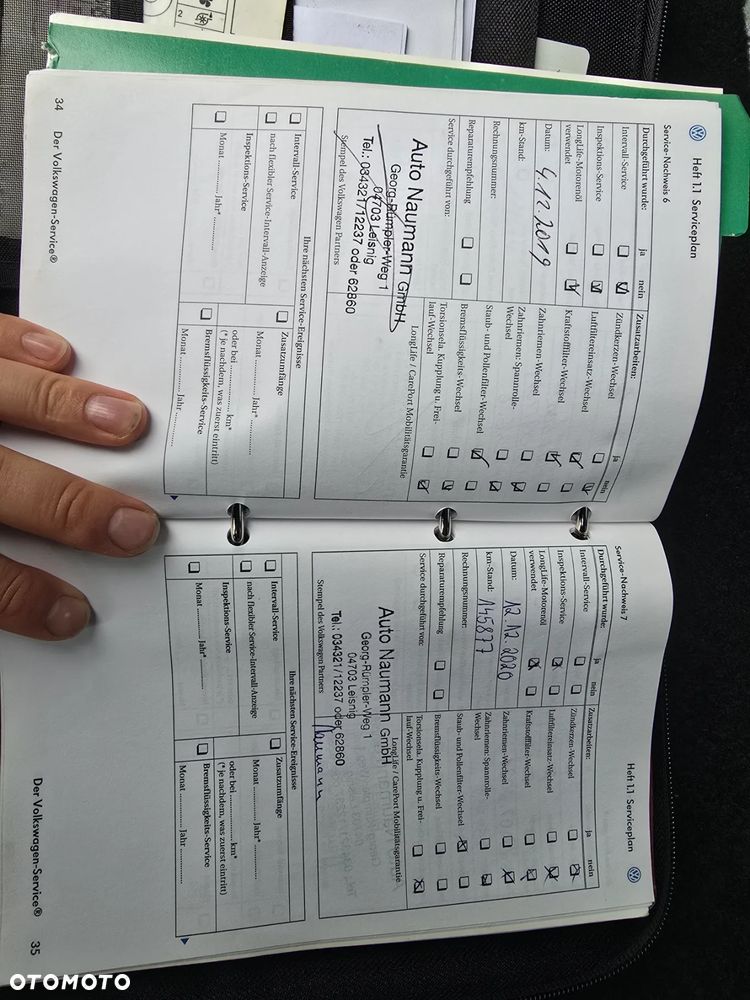 2
Heft 1.1 Serviceplan
Service-Nachweis 6
Durchgeführt wurde: ja nein
Intervall-Service
Inspektions-Service
LongLife-Motorenöl
verwendet
Datum: 4.12.2019
km-Stand:
Rechnungsnummer:
Reparaturempfehlung
Service durchgeführt von:
Zusatzarbeiten: ja nein
Zündkerzen-Wechsel
Luftfiltereinsatz-Wechsel
Kraftstofffilter-Wechsel
Zahnriemen-Wechsel
Zahnriemen: Spannrolle-
Wechsel
Staub- und Pollenfilter-Wechsel
Bremsflüssigkeits-Wechsel
Torsionsela. Kupplung u. Frei-
lauf-Wechsel
LongLife / CarePort Mobilitätsgarantie
Auto Naumann GmbH
Georg-Rümpler-Weg 1
04703 Leisnig
Tel.: 034321/12237 oder 62860
Stempel des Volkswagen Partners
Ihre nächsten Service-Ereignisse
Intervall-Service
nach flexibler Service-Intervall-Anzeige
Inspektions-Service
Monat ............... Jahr* ...............
Zusatzumfänge
Monat ............... Jahr* ...............
oder bei ............... km*
(* je nachdem, was zuerst eintritt)
Bremsflüssigkeits-Service
Monat ............... Jahr ...............
34 Der Volkswagen-Service®
Heft 1.1 Serviceplan
Service-Nachweis 7
Durchgeführt wurde: ja nein
Intervall-Service
Inspektions-Service
LongLife-Motorenöl
verwendet
Datum: 12.12.2020
km-Stand: 145877
Rechnungsnummer:
Reparaturempfehlung
Service durchgeführt von:
Zusatzarbeiten: ja nein
Zündkerzen-Wechsel
Luftfiltereinsatz-Wechsel
Kraftstofffilter-Wechsel
Zahnriemen-Wechsel
Zahnriemen: Spannrolle-
Wechsel
Staub- und Pollenfilter-Wechsel
Bremsflüssigkeits-Wechsel
Torsionsela. Kupplung u. Frei-
lauf-Wechsel
LongLife / CarePort Mobilitätsgarantie
Auto Naumann GmbH
Georg-Rümpler-Weg 1
04703 Leisnig
Tel.: 034321/12237 oder 62860
Naumann
Stempel des Volkswagen Partners
Ihre nächsten Service-Ereignisse
Intervall-Service
nach flexibler Service-Intervall-Anzeige
Inspektions-Service
Monat ............... Jahr* ...............
Zusatzumfänge
Monat ............... Jahr* ...............
oder bei ............... km*
(* je nachdem, was zuerst eintritt)
Bremsflüssigkeits-Service
Monat ............... Jahr ...............
Der Volkswagen-Service® 35
OTOMOTO